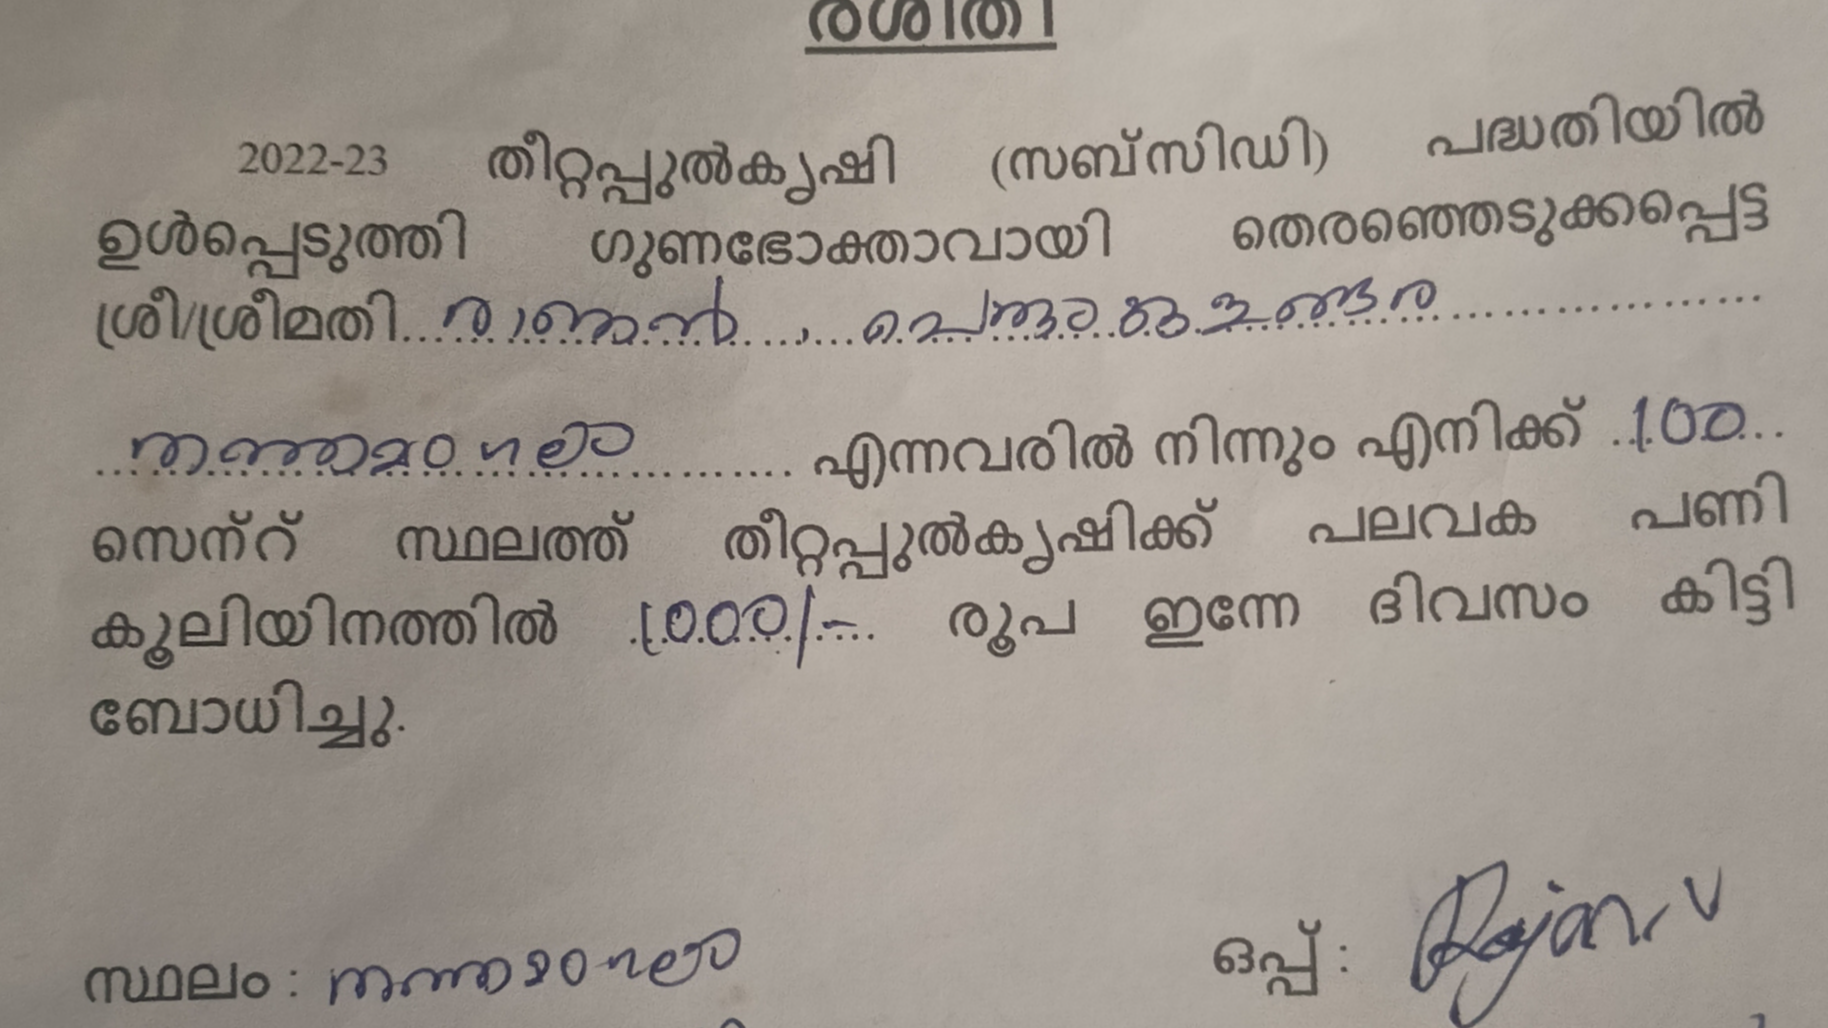 രശീതി
2022-23 തീറ്റപ്പുൽകൃഷി (സബ്സിഡി) പദ്ധതിയിൽ
ഉൾപ്പെടുത്തി ഗുണഭോക്താവായി തെരഞ്ഞെടുക്കപ്പെട്ട
ശ്രീ/ശ്രീമതി രാജൻ,
തത്തമംഗലം എന്നവരിൽ നിന്നും എനിക്ക് 100
സെന്റ് സ്ഥലത്ത് തീറ്റപ്പുൽകൃഷിക്ക് പലവക പണി
കൂലിയിനത്തിൽ 1000/- രൂപ ഇന്നേ ദിവസം കിട്ടി
ബോധിച്ചു.
സ്ഥലം : തത്തമംഗലം ഒപ്പ് : Rajan. V